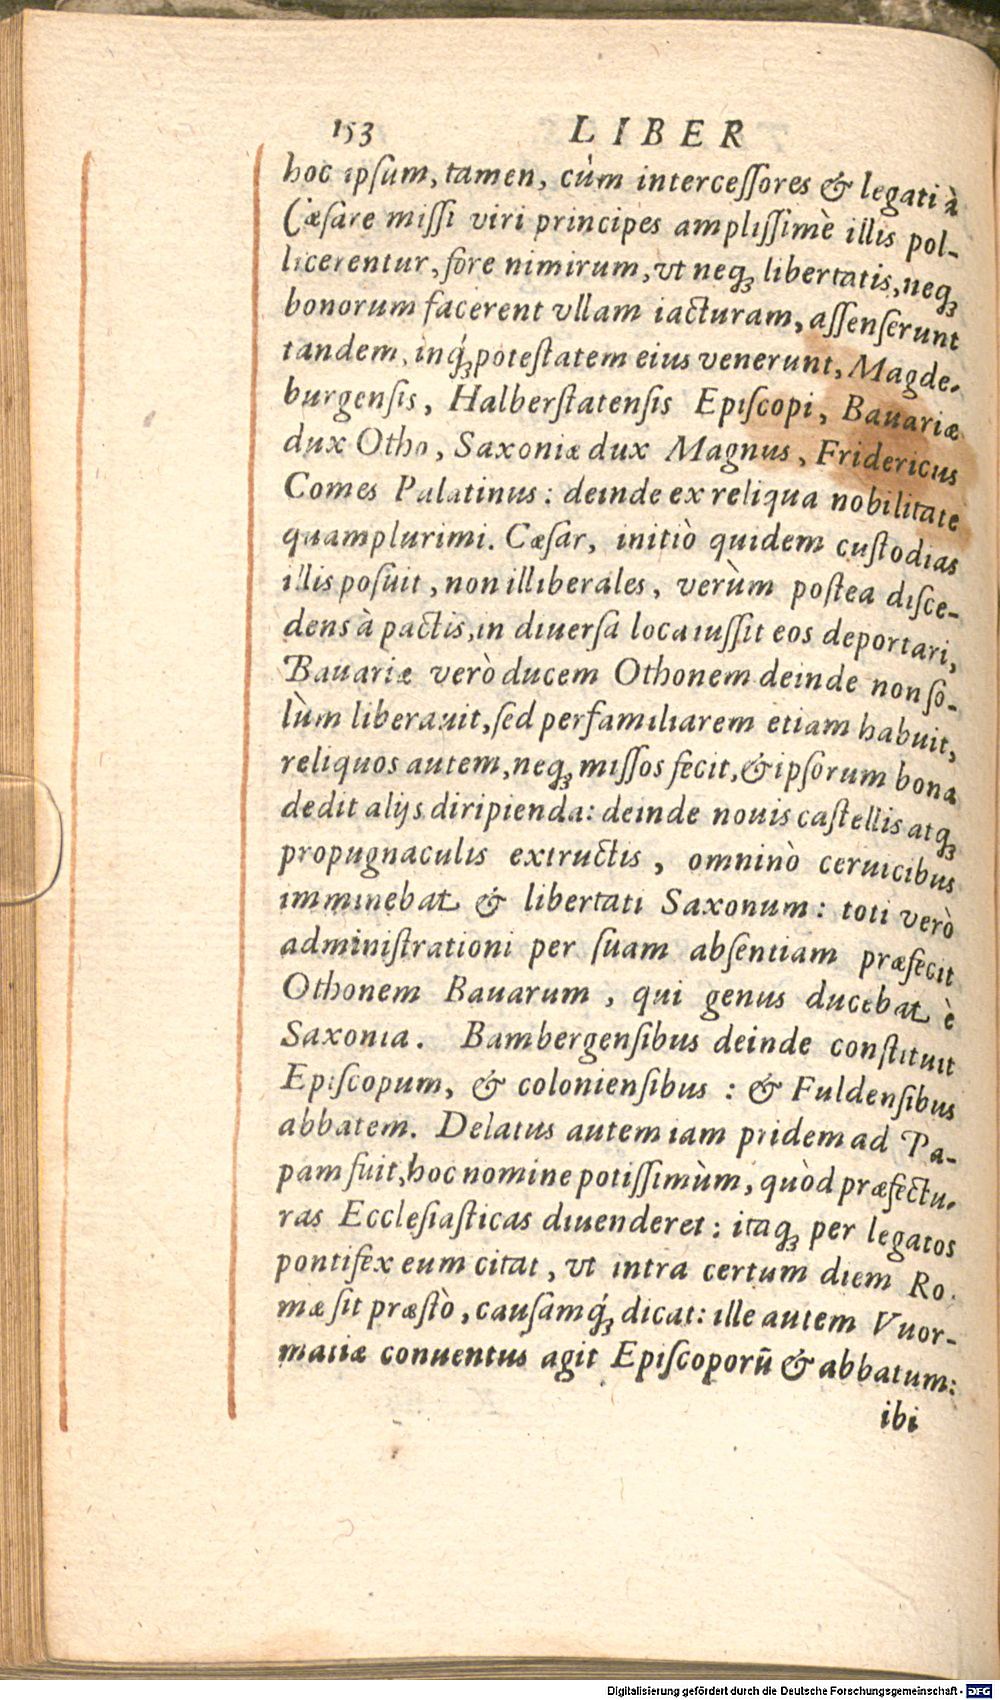 153 LIBER
hoc ipſum, tamen, cùm interceſſores & legati à
Cæſare miſſi viri principes ampliſſimè illis pol-
licerentur, fore nimirum, vt neqꝫ libertatis, neqꝫ
bonorum facerent vllam iacturam, aſſenſerunt
tandem, inq́ꝫ poteſtatem eius venerunt, Magde-
burgenſis, Halberſtatenſis Epiſcopi, Bauariæ
dux Otho, Saxoniæ dux Magnus, Fridericus
Comes Palatinus: deinde ex reliqua nobilitate
quamplurimi. Cæſar, initiò quidem cuſtodias
illis poſuit, non illiberales, verùm poſtea diſce-
dens à pactis, in diuerſa loca iuſſit eos deportari,
Bauariæ verò ducem Othonem deinde non ſo-
lùm liberauit, ſed perfamiliarem etiam habuit,
reliquos autem, neqꝫ miſſos fecit, & ipſorum bona
dedit alijs diripienda: deinde nouis caſtellis atqꝫ
propugnaculis extructis, omninò ceruicibus
imminebat & libertati Saxonum: toti verò
adminiſtrationi per ſuam abſentiam præfecit
Othonem Bauarum, qui genus ducebat è
Saxonia. Bambergenſibus deinde conſtituit
Epiſcopum, & colonienſibus: & Fuldenſibus
abbatem. Delatus autem iam pridem ad Pa-
pam fuit, hoc nomine potiſſimùm, quòd præfectu-
ras Eccleſiaſticas diuenderet: itaqꝫ per legatos
pontifex eum citat, vt intra certum diem Ro-
mæ ſit præſtò, cauſamq́ꝫ dicat: ille autem Vuor-
matiæ conuentus agit Epiſcoporū & abbatum:
ibi
Digitalisierung gefördert durch die Deutsche Forschungsgemeinschaft - DFG